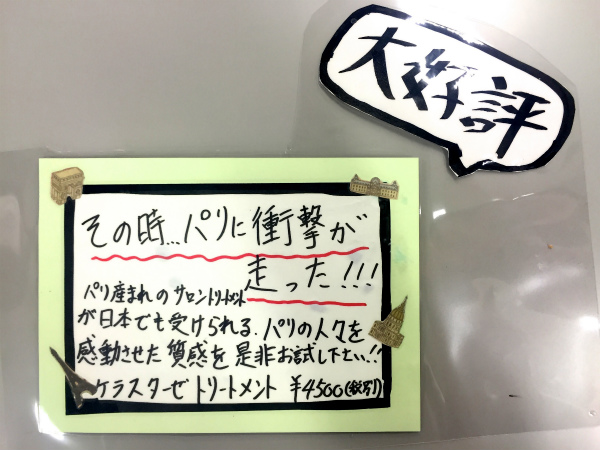 大好評
その時…パリに衝撃が
走った!!!
パリ産まれのサロントリートメント
が日本でも受けられる、パリの人々を
感動させた質感を是非お試し下さい!!
ケラスターゼトリートメント ¥4500(税別)